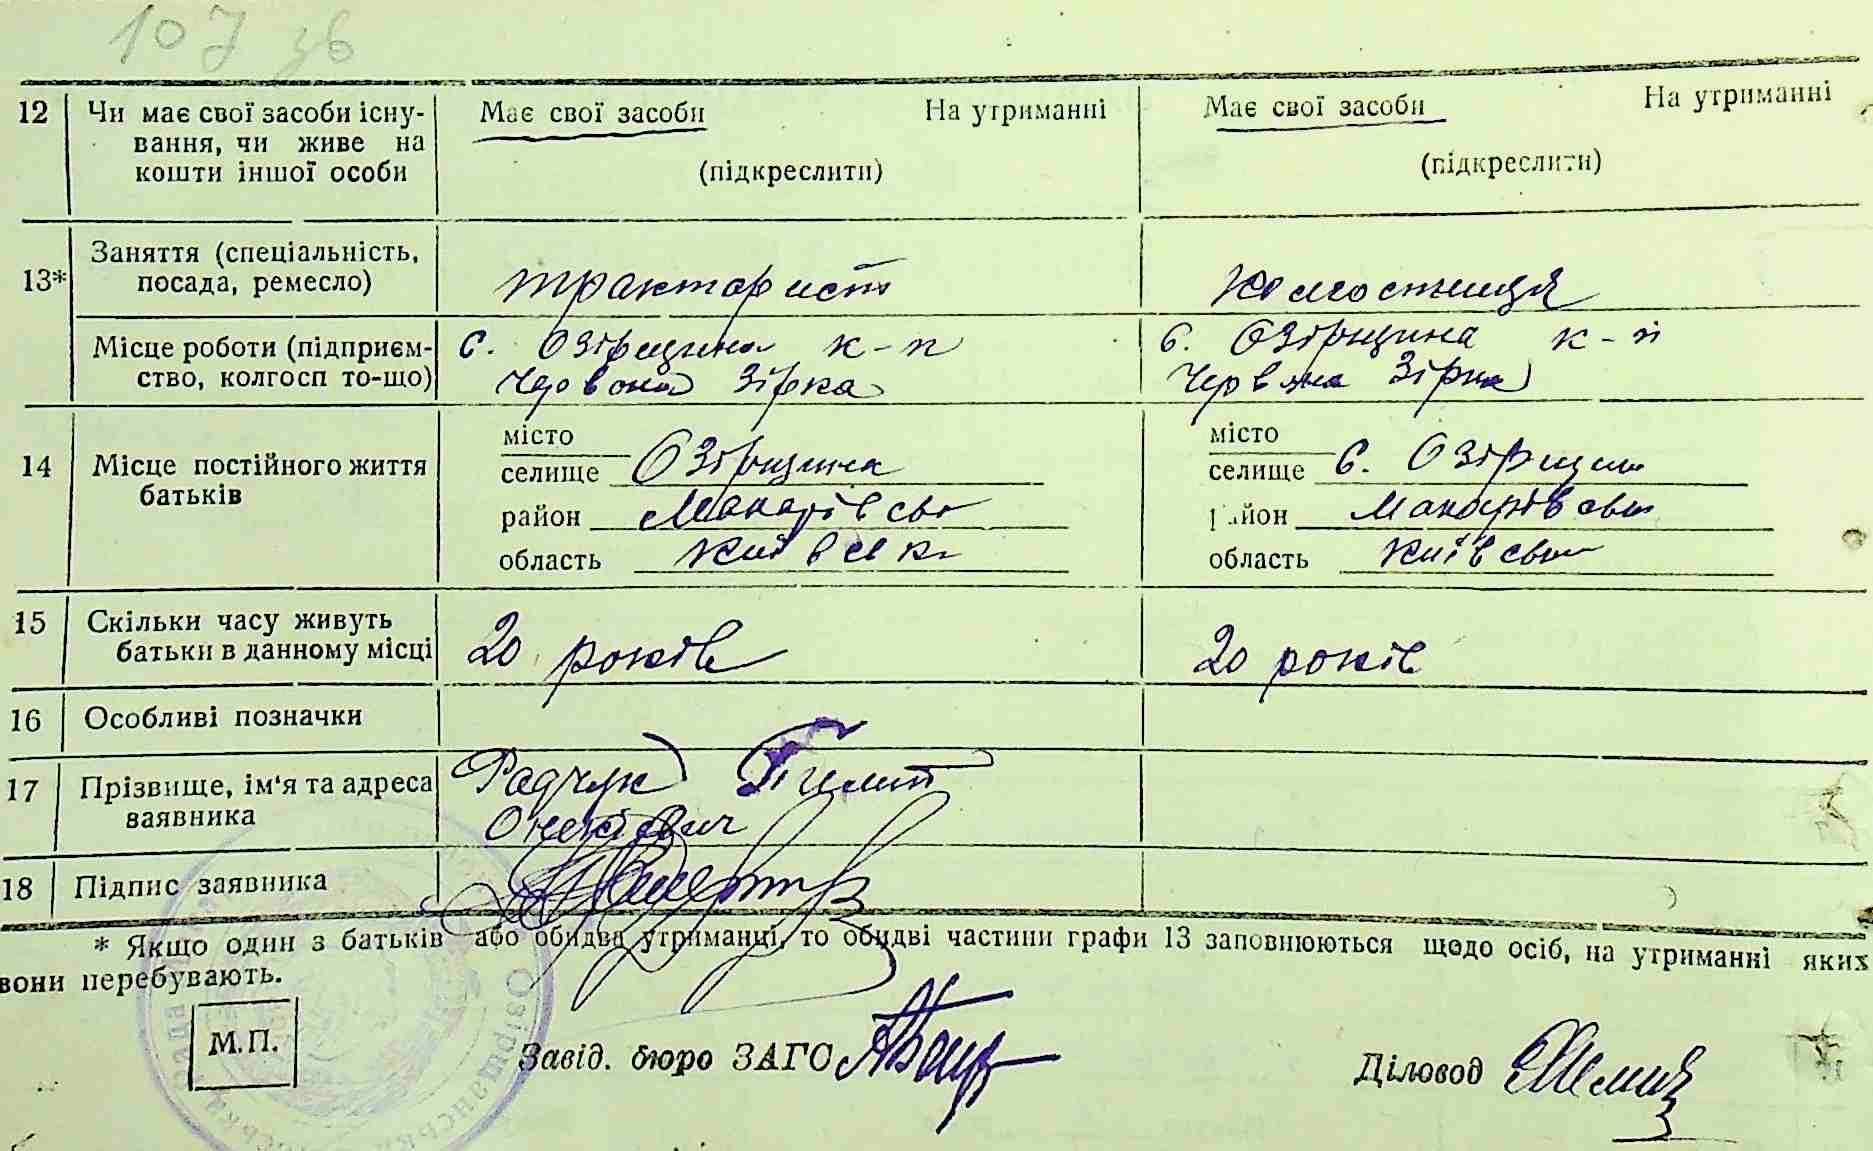 107 зв
12 Чи має свої засоби існу- Має свої засоби На утриманні Має свої засоби На утриманні
вання, чи живе на
кошти іншої особи (підкреслити) (підкреслити)
13* Заняття (спеціальність,
посада, ремесло) тракторист колгоспниця
Місце роботи (підприєм- с. Озірщина к-п с. Озірщина к-п
ство, колгосп то-що) Червона Зірка Червона Зірка
місто місто
14 Місце постійного життя селище Озірщина селище с. Озірщин
батьків район Макарівськ район Макарівськ
область Київськ область Київськ
15 Скільки часу живуть
батьки в данному місці 20 років 20 років
16 Особливі позначки
17 Прізвище, ім'я та адреса Радчук
ваявника
18 Підпис заявника
* Якщо один з батьків або обидва утриманці, то обидві частини графи 13 заповнюються щодо осіб, на утриманні яких
вони перебувають.
М.П.
Завід. бюро ЗАГС Діловод
Озірщанська